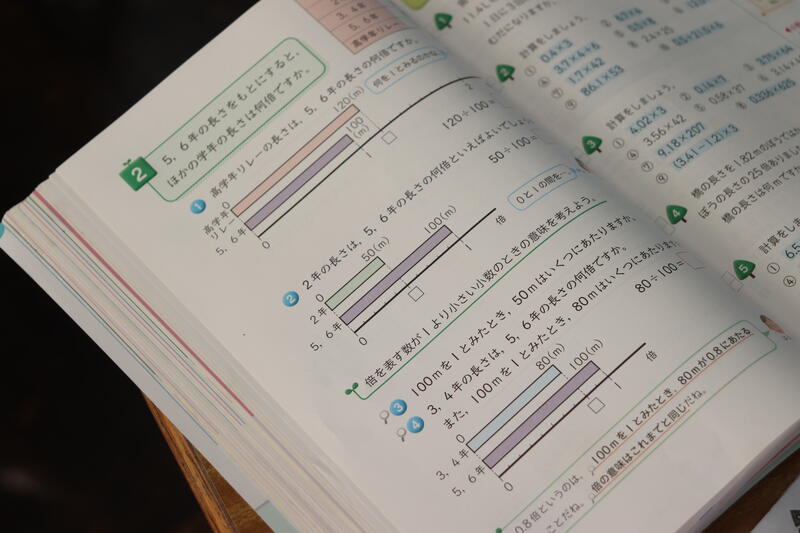 3, 4年
5, 6年
高学年リレー
2
5, 6年の長さをもとにすると、
ほかの学年の長さは何倍ですか。
1 高学年リレーの長さは、5, 6年の長さの何倍ですか。
何を1とみるのかな。
120(m)
100
(m)
0
1
2
高学年
リレー
5, 6年
0
120÷100=
2 2年の長さは、5, 6年の長さの何倍といえばよいでしょ
50÷100=
0と1の間を…。
0
50(m)
100(m)
倍
2年
5, 6年
0
1
倍を表す数が1より小さい小数のときの意味を考えよう。
3 100mを1とみたとき、50mはいくつにあたりますか。
4 3, 4年の長さは、5, 6年の長さの何倍ですか。
また、100mを1とみたとき、80mはいくつにあたりま
80÷100=
0
80(m)
100(m)
倍
3, 4年
5, 6年
0
1
0.8倍というのは、100mを1とみたとき、80mが0.8にあたる
ことだね。倍の意味はこれまでと同じだね。
1
1日に3
むだになりますか。
2 計算をしましょう。
① 0.4×3
④ 3.7×4×6
⑦ 1.7×42
86.1×53
② 0.7×4
0.5×8
⑧ 2.4×25
3 計算をしましょう。
① 4.02×3
④ 3.56×42
⑦ 9.18×207
(3.41−1.2)×3
② 0.14×7
⑤ 0.58×37
0.336×625
③ 3.75×64
4 橋の長さを1.82mのぼうではか
ぼうの長さの25倍ありまし
橋の長さは何mですか
5 計算をしま
① 6.5
④